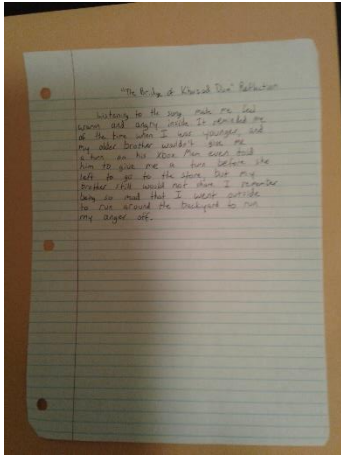 "The Bridge of Khazad Dum" Reflection
Listening to the song make me feel
warm and angry inside It reminded me
of the time when I was younger, and
my older brother wouldn't give me
a turn on his Xbox Mom even told
him to give me a turn before she
left to go to the store, but my
brother still would not share I remember
being so mad that I went outside
to run around the backyard to run
my anger off.